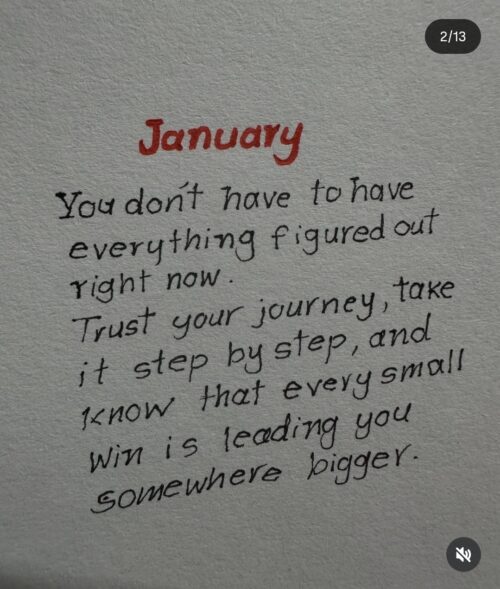 2/13
January
You don't have to have
everything figured out
right now.
Trust your journey, take
it step by step, and
know that every small
win is leading you
somewhere bigger.